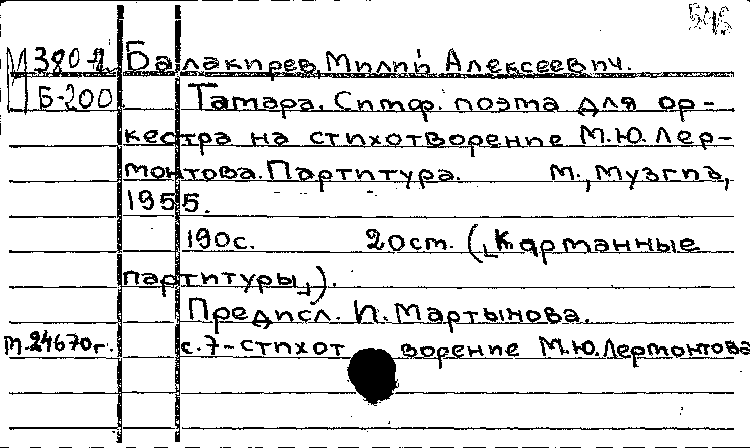 545
М 380-2 Балакирев, Милий Алексеевич.
Б-200 Тамара. Симф. поэма для ор-
кестра на стихотворение М.Ю. Лер-
монтова. Партитура. М., Музгиз,
1955.
190с. 20см. ([Карманные
партитуры]).
Предисл. И. Мартынова.
М.24670г. с.7-стихотворение М.Ю. Лермонтова